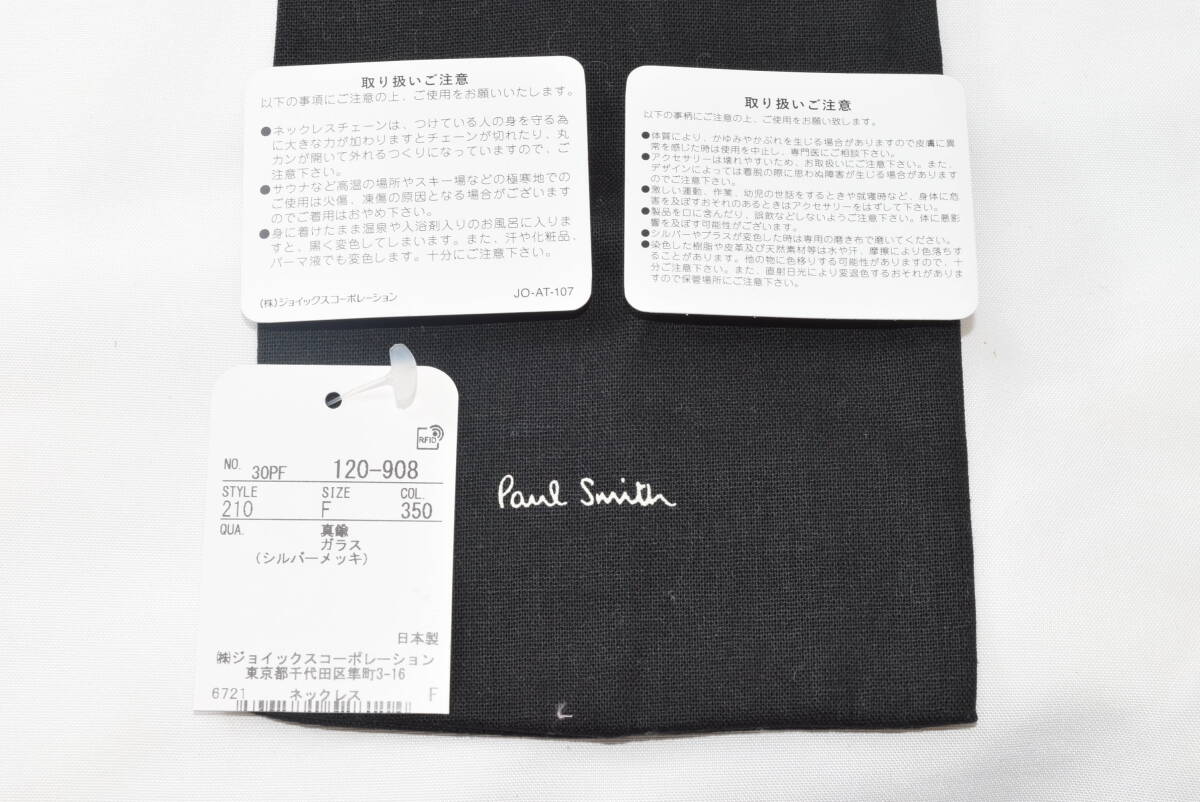 取り扱いご注意
以下の事項にご注意の上、ご使用をお願いいたします。
●ネックレスチェーンは、つけている人の身を守る為
に大きな力が加わりますとチェーンが切れたり、丸
カンが開いて外れるつくりになっていますので、ご
注意下さい。
●サウナなど高温の場所やスキー場などの極寒地での
ご使用は火傷、凍傷の原因となる場合がございます
のでご着用はおやめ下さい。
●身に着けたまま温泉や入浴剤入りのお風呂に入りま
すと、黒く変色してしまいます。また、汗や化粧品、
パーマ液でも変色します。十分にご注意下さい。
(株)ジョイックスコーポレーション
JO-AT-107
取り扱いご注意
以下の事柄にご注意の上、ご使用をお願い致します。
●体質により、かゆみやかぶれを生じる場合がありますので皮膚に異
常を感じた時は使用を中止し、専門医にご相談下さい。
●アクセサリーは壊れやすいため、お取扱いにご注意下さい。また、
デザインによっては着脱の際に思わぬ障害が生じる場合があります
のでご注意下さい。
●激しい運動、作業、幼児の世話をするときや就寝時など、身体に危
害を及ぼすおそれのあるときはアクセサリーをはずして下さい。
●製品を口に含んだり、誤飲などしないようご注意下さい。体に悪影
響を及ぼす可能性がございます。
●シルバーやブラスが変色した時は専用の磨き布で磨いてください。
●染色した樹脂や皮革及び天然素材等は水や汗、摩擦により色落ちす
ることがあります。他の物に色移りする可能性がありますので、十
分ご注意下さい。また、直射日光により変退色するおそれがありま
すので保管場所にご注意下さい。
RFID
NO. 30PF 120-908
STYLE SIZE COL.
210 F 350
QUA. 真鍮
ガラス
(シルバーメッキ)
日本製
㈱ジョイックスコーポレーション
東京都千代田区隼町3-16
6721 ネックレス F
Paul Smith